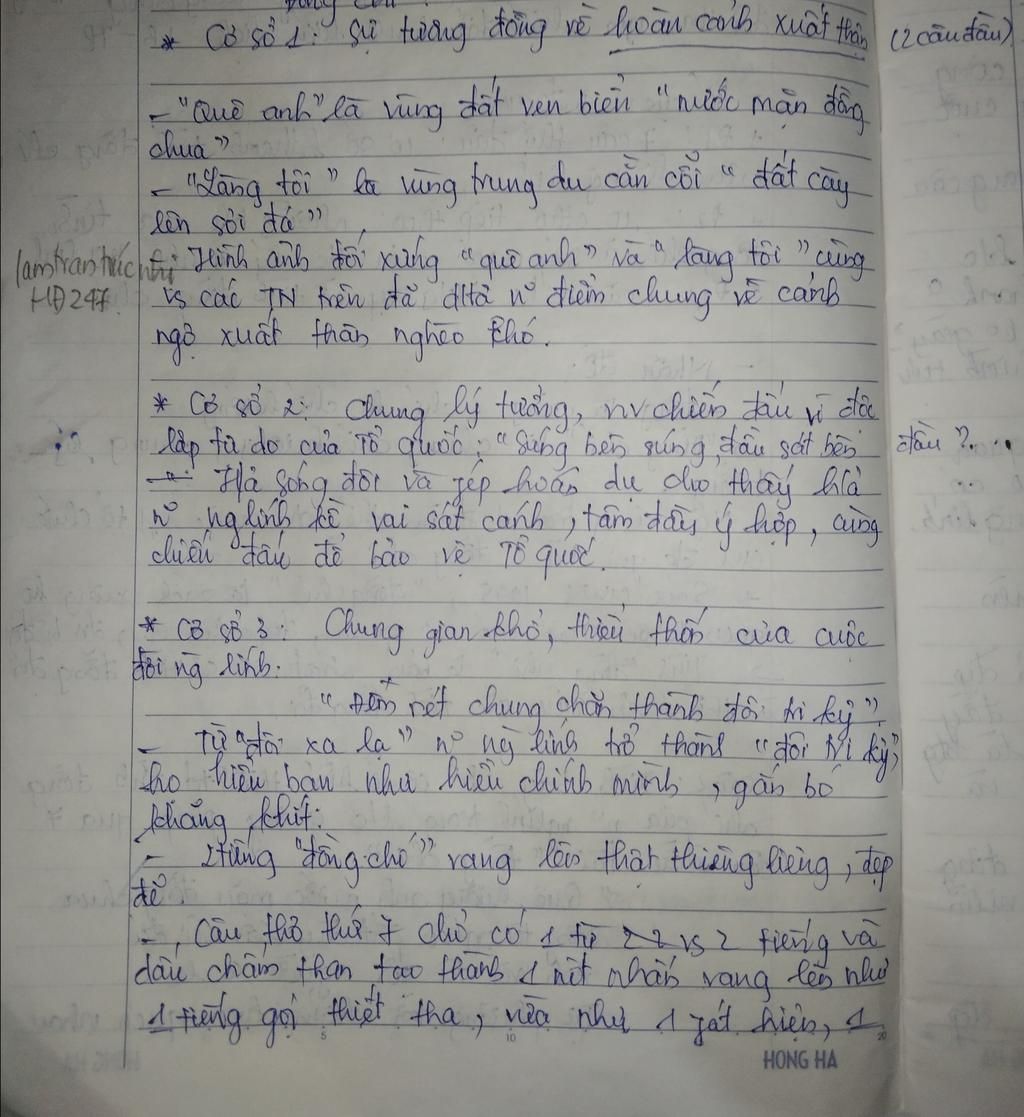 * Cơ sở 1: Sự tương đồng về hoàn cảnh xuất thân (2 câu đầu)
- "Quê anh" là vùng đất ven biển "nước mặn đồng
chua"
- "Làng tôi" là vùng trung du cằn cỗi "đất cày
lên sỏi đá"
- Hình ảnh đối xứng "quê anh" và "làng tôi" cùng
lamtrantrucnhi
HĐ247
vs các TN trên đã diễn tả nº điểm chung về cảnh
ngộ xuất thân nghèo khó.
* Cơ sở 2: Chung lý tưởng, nv chiến đấu vì độc
lập tự do của Tổ quốc: "Súng bên súng, đầu sát bên đầu".
- Hả sóng đôi và phép hoán dụ cho thấy hả
nº ng lính kề vai sát cánh, tâm đầu ý hợp, cùng
chiến đấu để bảo vệ Tổ quốc.
* Cơ sở 3: Chung gian khổ, thiếu thốn của cuộc
đời ng lính.
"Đêm rét chung chăn thành đôi tri kỷ"
- Từ "đôi xa lạ" nº ng lính trở thành "đôi tri kỷ",
họ hiểu bạn như hiểu chính mình, gắn bó
khăng khít.
- 2 tiếng "đồng chí" vang lên thật thiêng liêng, đẹp
đẽ
- Câu thơ thứ 7 chỉ có 1 từ vs 2 tiếng và
dấu chấm than tạo thành 1 nốt nhấn vang lên như
1 tiếng gọi thiết tha, vừa như 1 phát hiện, 1
HONG HA